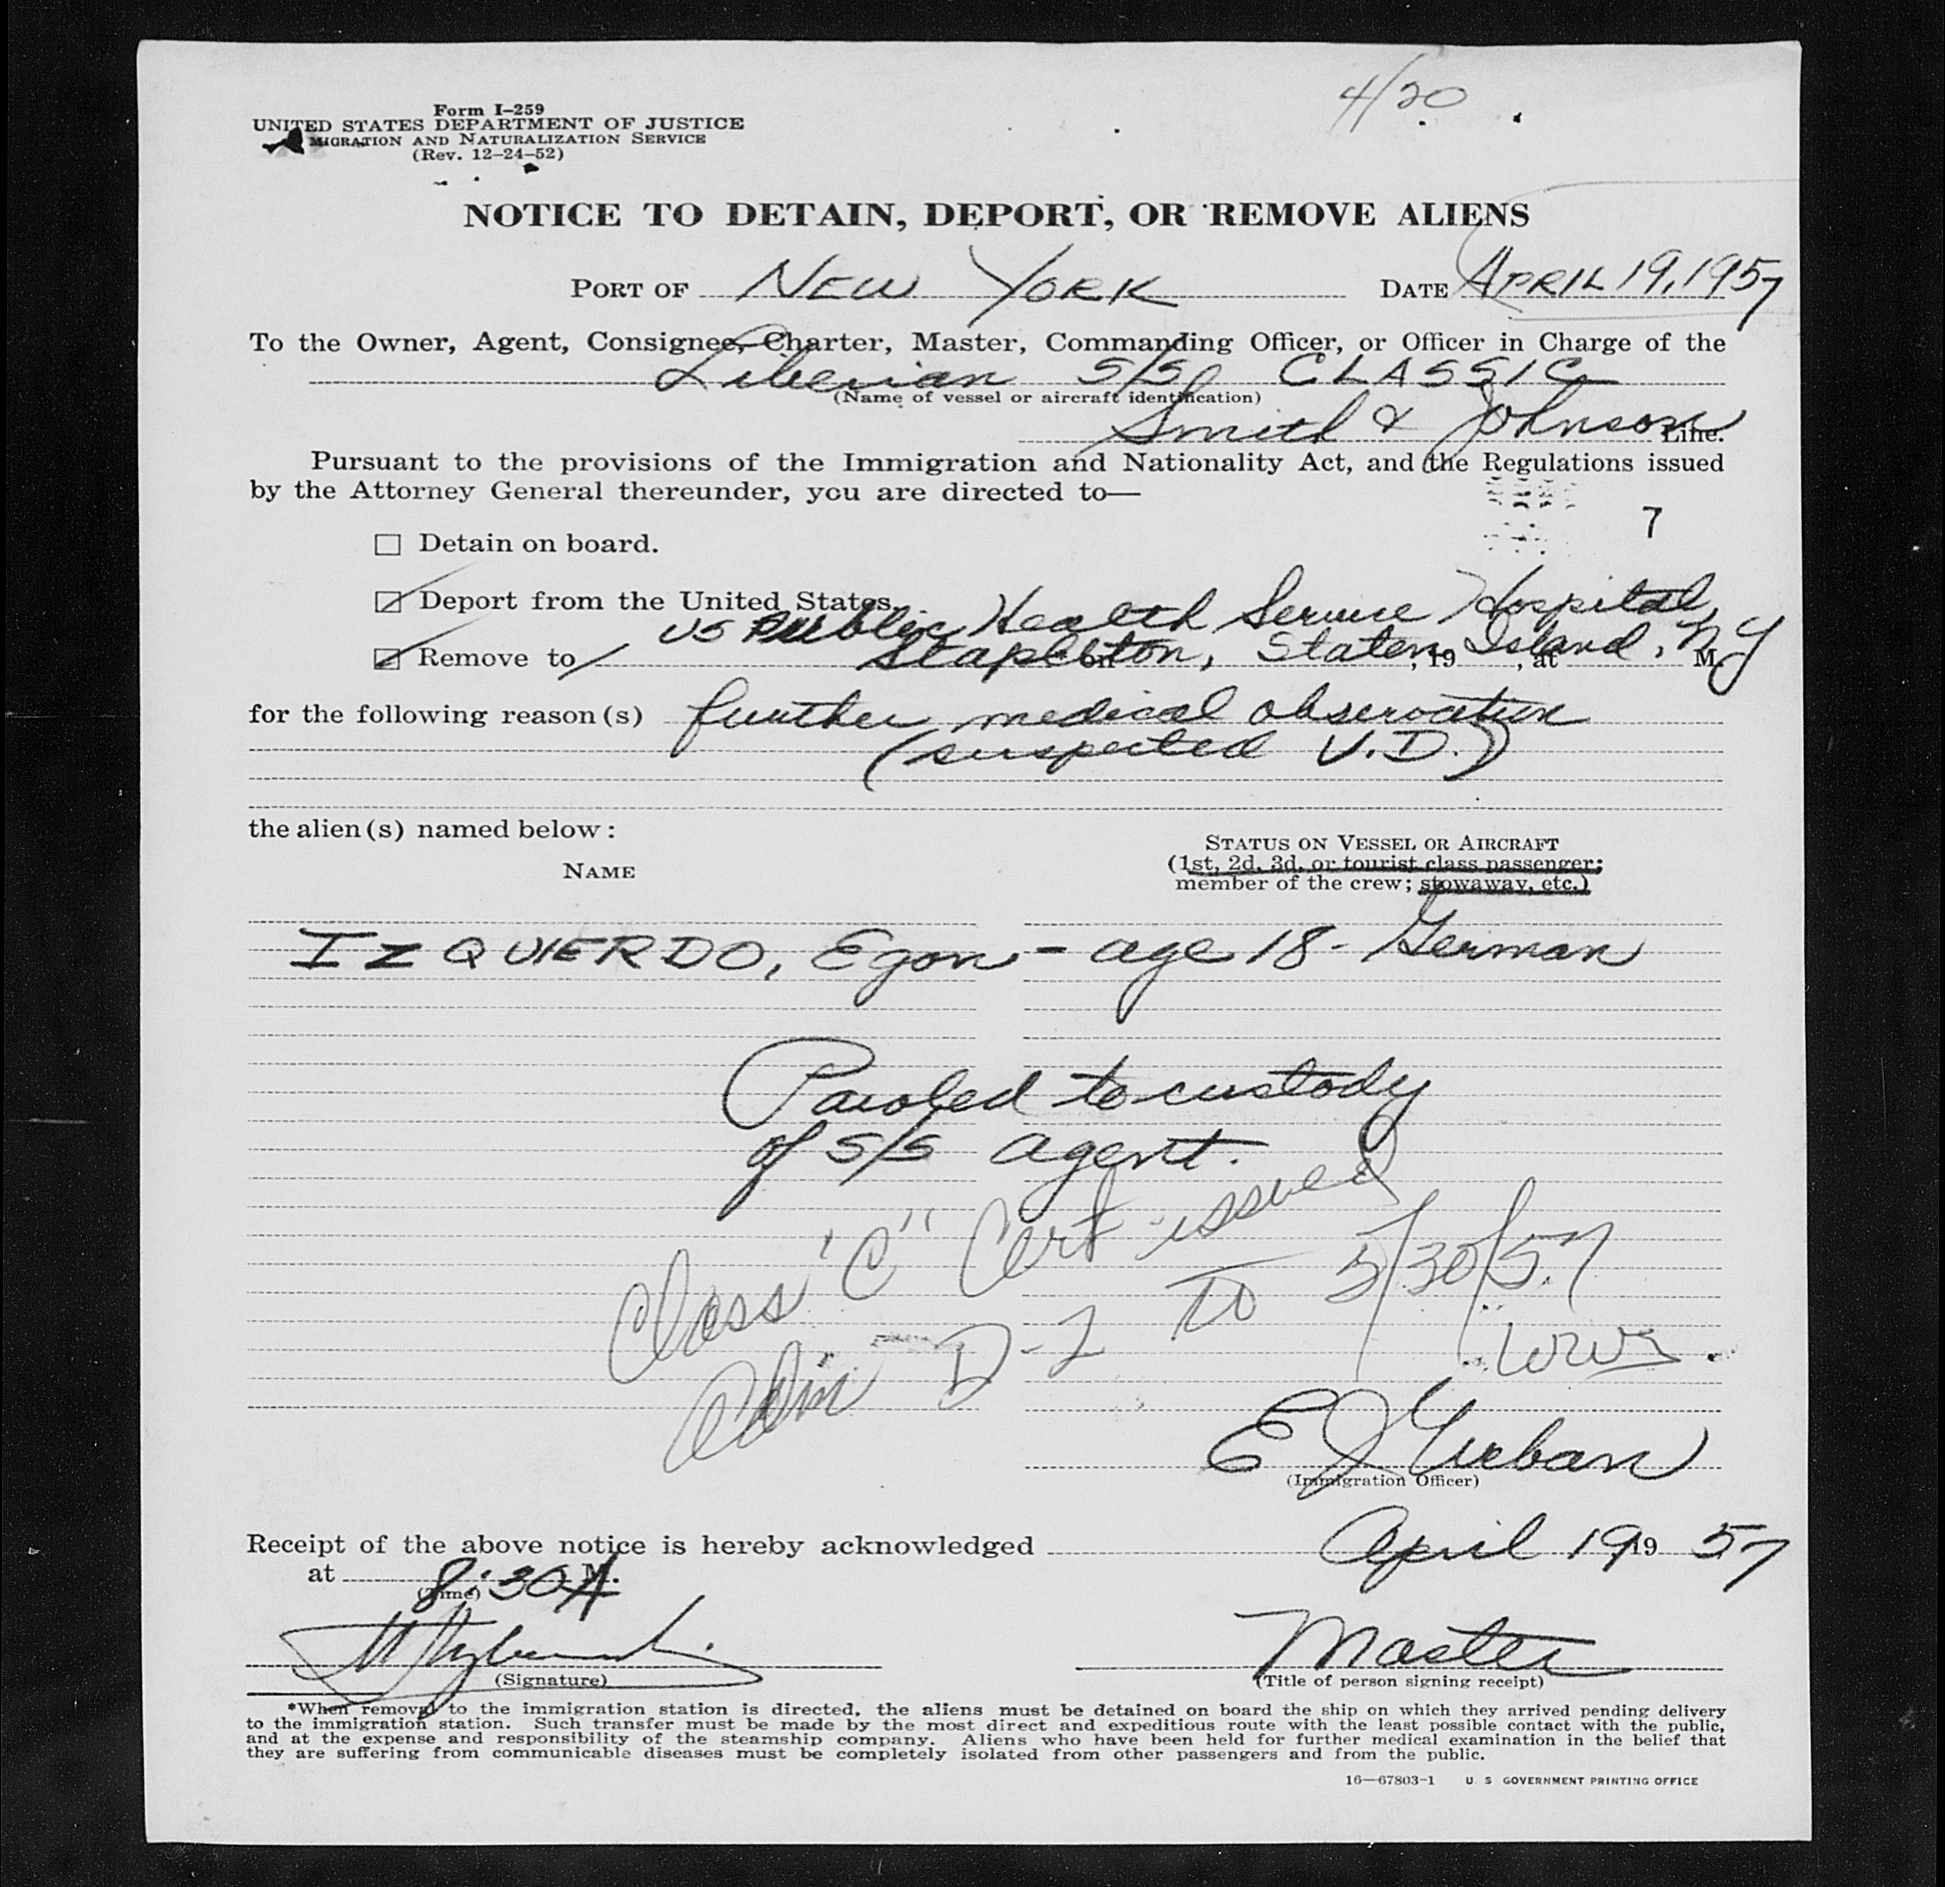 4/20
Form I-259
UNITED STATES DEPARTMENT OF JUSTICE
MIGRATION AND NATURALIZATION SERVICE
(Rev. 12-24-52)
NOTICE TO DETAIN, DEPORT, OR REMOVE ALIENS
PORT OF NEW YORK DATE APRIL 19, 1957
To the Owner, Agent, Consignee, Charter, Master, Commanding Officer, or Officer in Charge of the
Liberian S/S CLASSIC
(Name of vessel or aircraft identification)
Smith & Johnson Line.
Pursuant to the provisions of the Immigration and Nationality Act, and the Regulations issued
by the Attorney General thereunder, you are directed to—
7
☐ Detain on board.
☑ Deport from the United States.
US Public Health Service Hospital,
☑ Remove to Stapleton, on Staten Island, N.Y , 19 , at M.
for the following reason(s) further medical observation
(suspected V.D.)
the alien(s) named below:
STATUS ON VESSEL OR AIRCRAFT
(1st, 2d, 3d, or tourist class passenger;
NAME
member of the crew; stowaway, etc.)
IZQUIERDO, Egon - age 18 - German
Paroled to custody
of S/S agent.
Class "C" Cert issued
Adm D-2 TO 5/30/57
E J Urban
(Immigration Officer)
Receipt of the above notice is hereby acknowledged April 19 19 57
at 8:30A M.
(Time)
Master
(Signature) (Title of person signing receipt)
*When removal to the immigration station is directed, the aliens must be detained on board the ship on which they arrived pending delivery
to the immigration station. Such transfer must be made by the most direct and expeditious route with the least possible contact with the public,
and at the expense and responsibility of the steamship company. Aliens who have been held for further medical examination in the belief that
they are suffering from communicable diseases must be completely isolated from other passengers and from the public.
16—67803-1 U. S GOVERNMENT PRINTING OFFICE